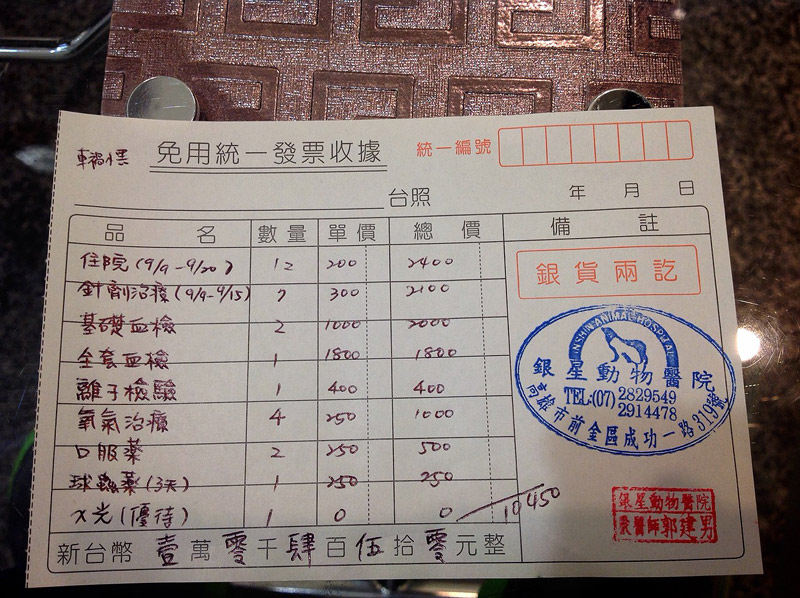 免用統一發票收據
統一編號
台照 年 月 日
品名 數量 單價 總價 備註
住院(9/9-9/20) 12 200 2400
針劑治療(9/9-9/15) 7 300 2100
基礎血檢 2 1000 2000
全套血檢 1 1800 1800
離子檢驗 1 400 400
氧氣治療 4 250 1000
口服薬 2 250 500
球蟲薬(3天) 1 250 250
X光(優待) 1 0 0 10450
新台幣 壹萬零千肆百伍拾零元整
銀貨兩訖
INSHIN ANIMAL HOSPITAL
銀星動物醫院
TEL:(07)2829549
2914478
高雄市前金區成功一路319號
銀星動物醫院
獸醫師郭建男